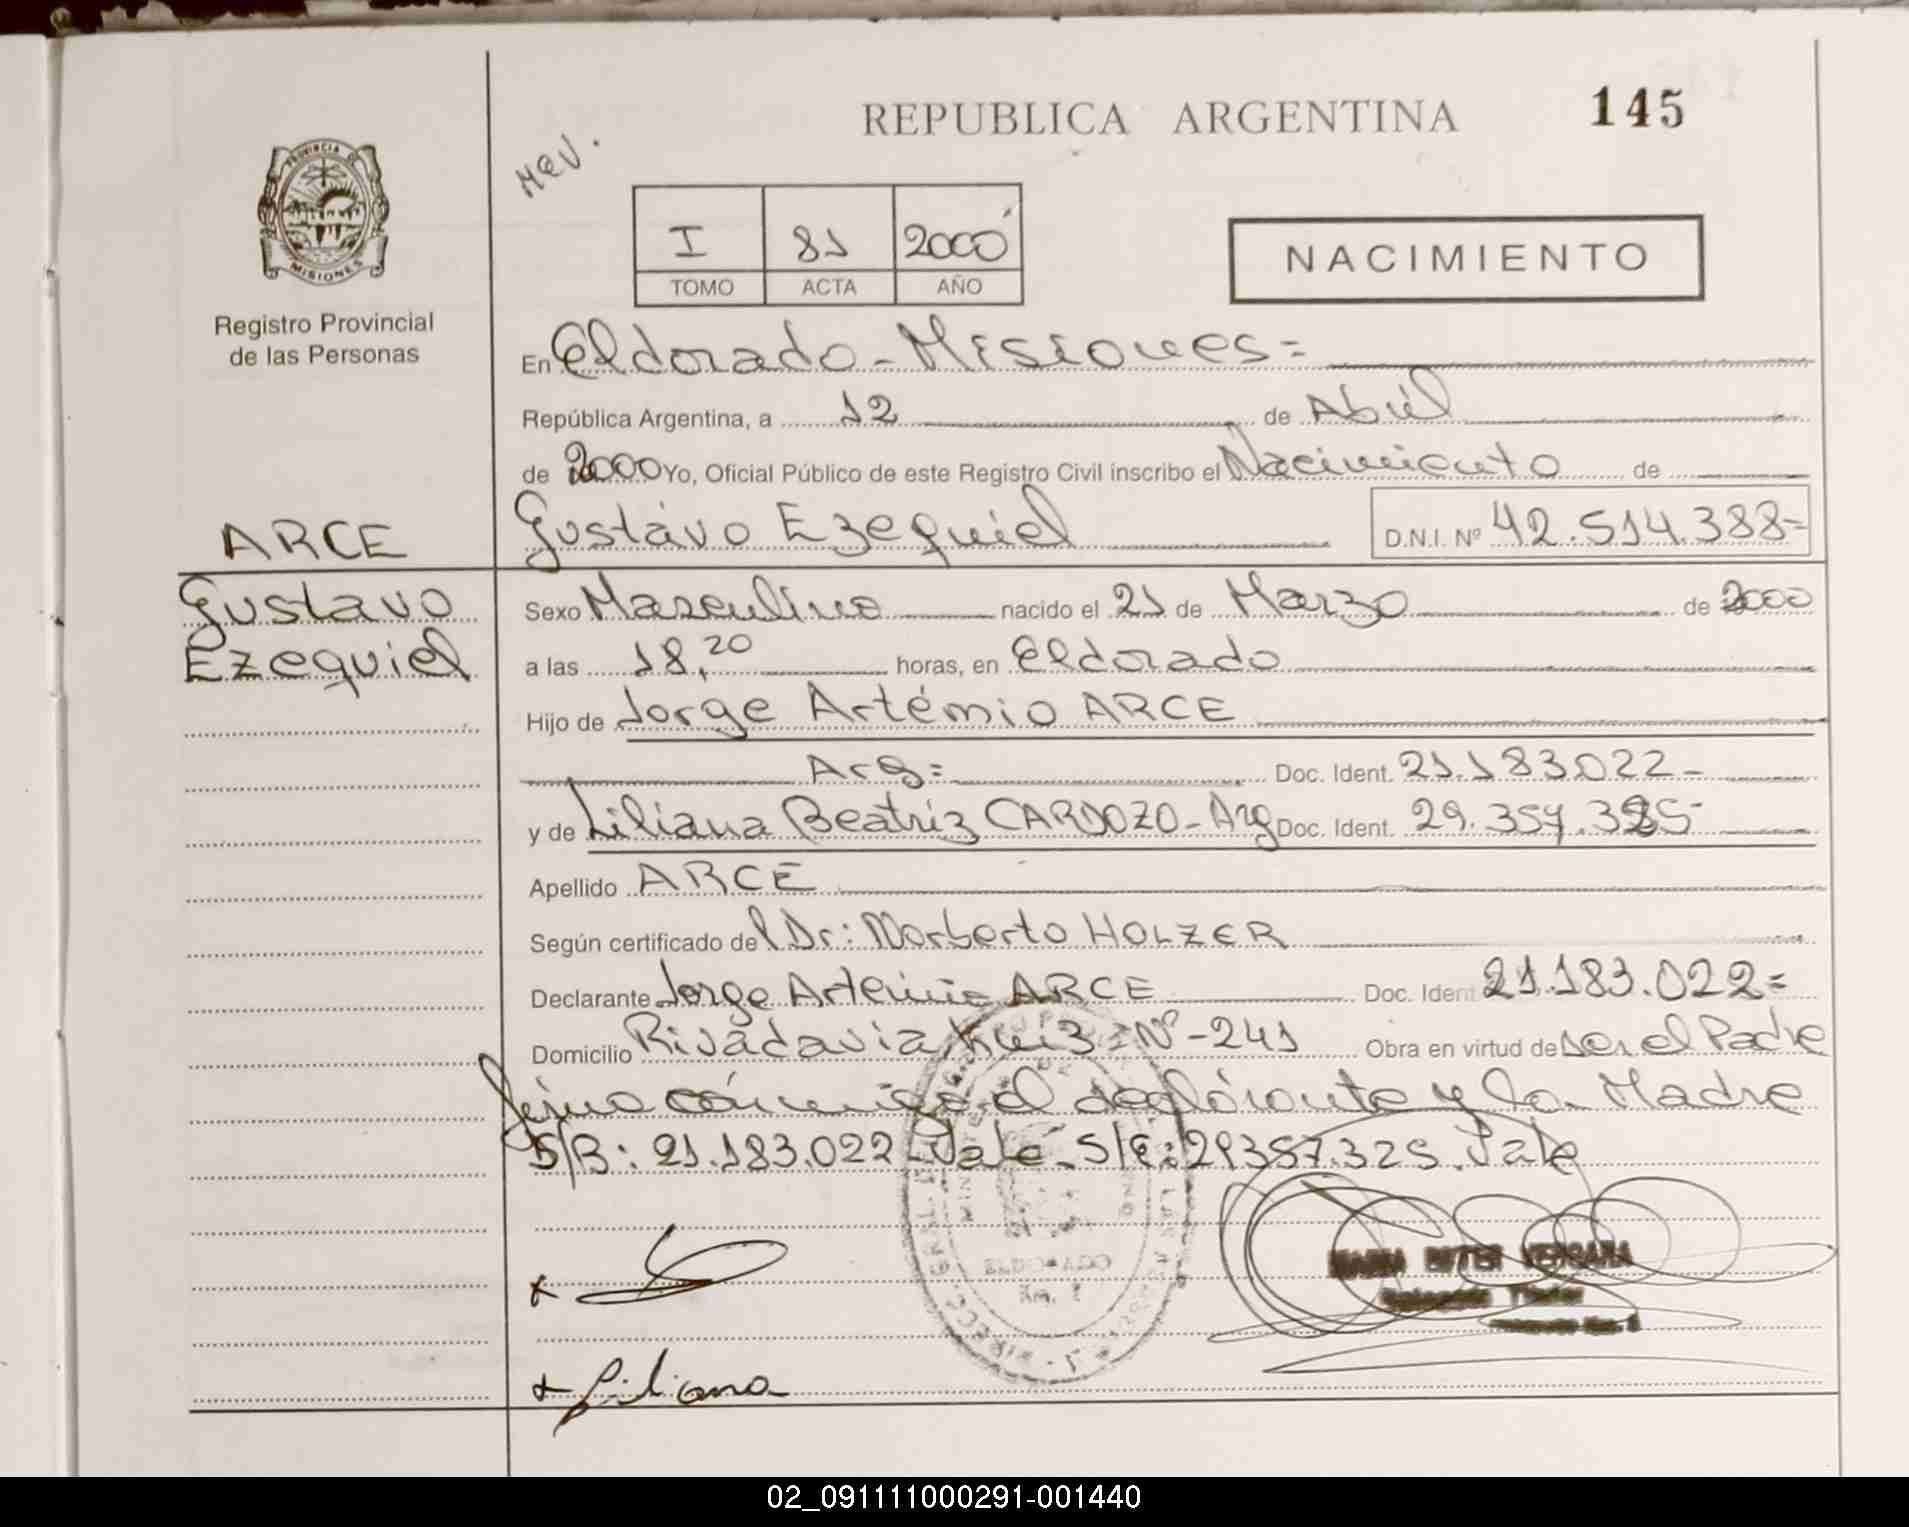 REPUBLICA ARGENTINA 145
PROVINCIA DE
MISIONES
Registro Provincial
de las Personas
I 81 2000
TOMO ACTA AÑO
NACIMIENTO
En Eldorado - Misiones=
República Argentina, a 12 de Abril
de 2000 Yo, Oficial Público de este Registro Civil inscribo el Nacimiento de
Gustavo Ezequiel D.N.I. Nº 42.514.388=
ARCE
Gustavo
Ezequiel
Sexo Masculino nacido el 21 de Marzo de 2000
a las 18,20 horas, en Eldorado
Hijo de Jorge Artémio ARCE
Arg= Doc. Ident. 21.183.022-
y de Liliana Beatriz CARDOZO - Arg Doc. Ident. 29.357.325-
Apellido ARCE
Según certificado del Dr: Norberto HOLZER
Declarante Jorge Artemio ARCE Doc. Ident 21.183.022=
Domicilio Rivadavia, Km 3 = Nº - 241 Obra en virtud de ser el Padre
firma conmigo el declarante y la Madre
S/B: 21.183.022 Vale - S/E: 29357.325. Vale
ELDORADO
Km.
VERGARA
Titular
x Liliana
02_091111000291-001440